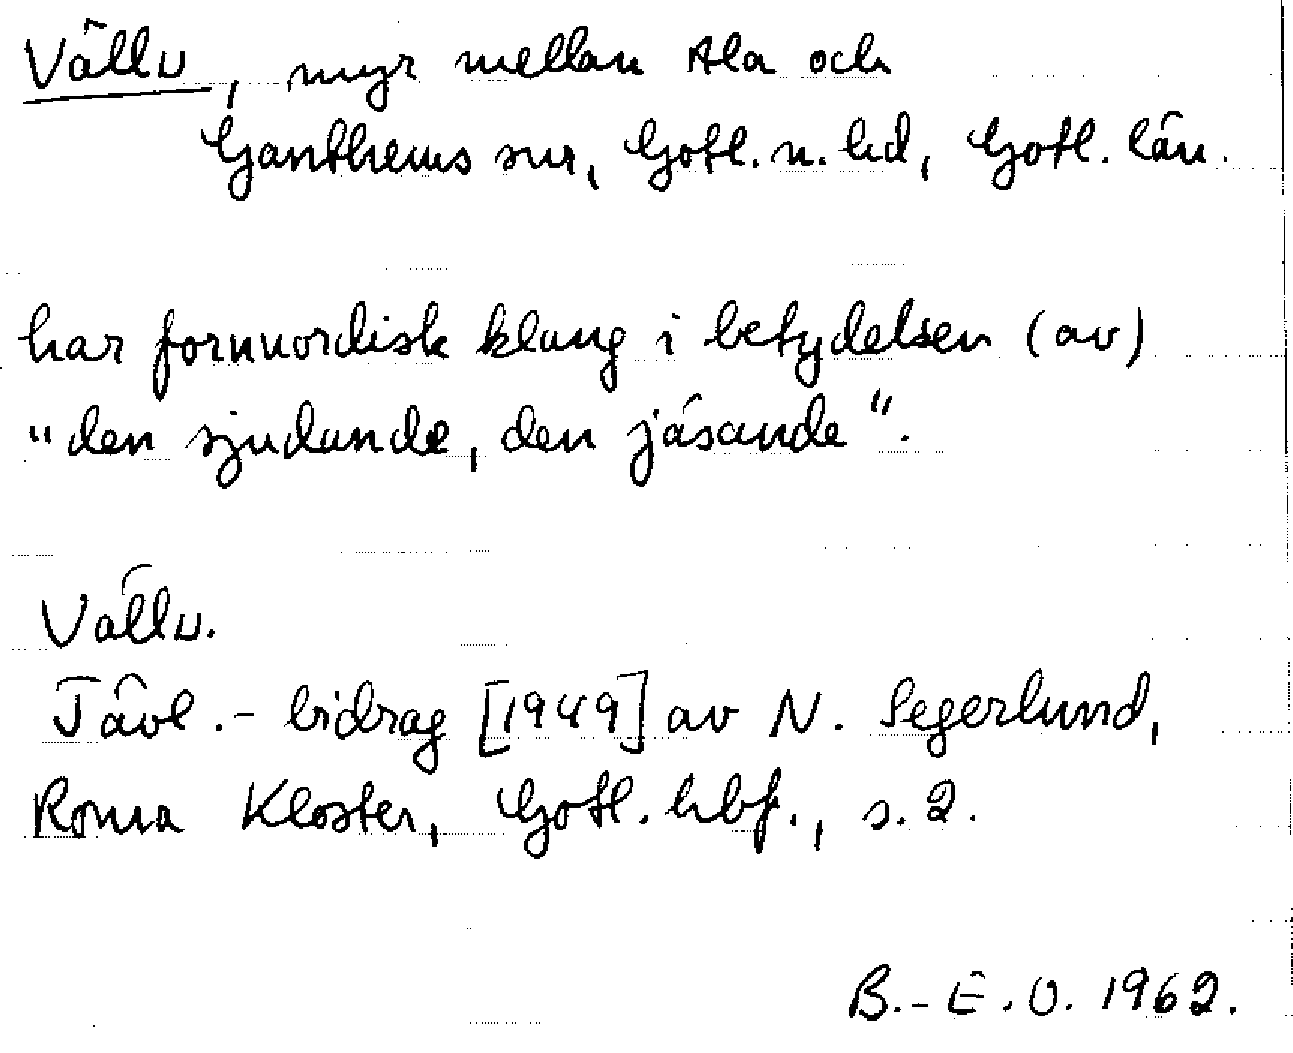 Vällu, myr mellan Ala och
Ganthems snr, Gotl. n. hd, Gotl. län.
har fornnordisk klang i betydelsen (av)
"den sjudande, den jäsande".
Vällu.
Tävl.- bidrag [1949] av N. Segerlund,
Roma Kloster, Gotl. hbf., s. 2.
B.-E. O. 1962.